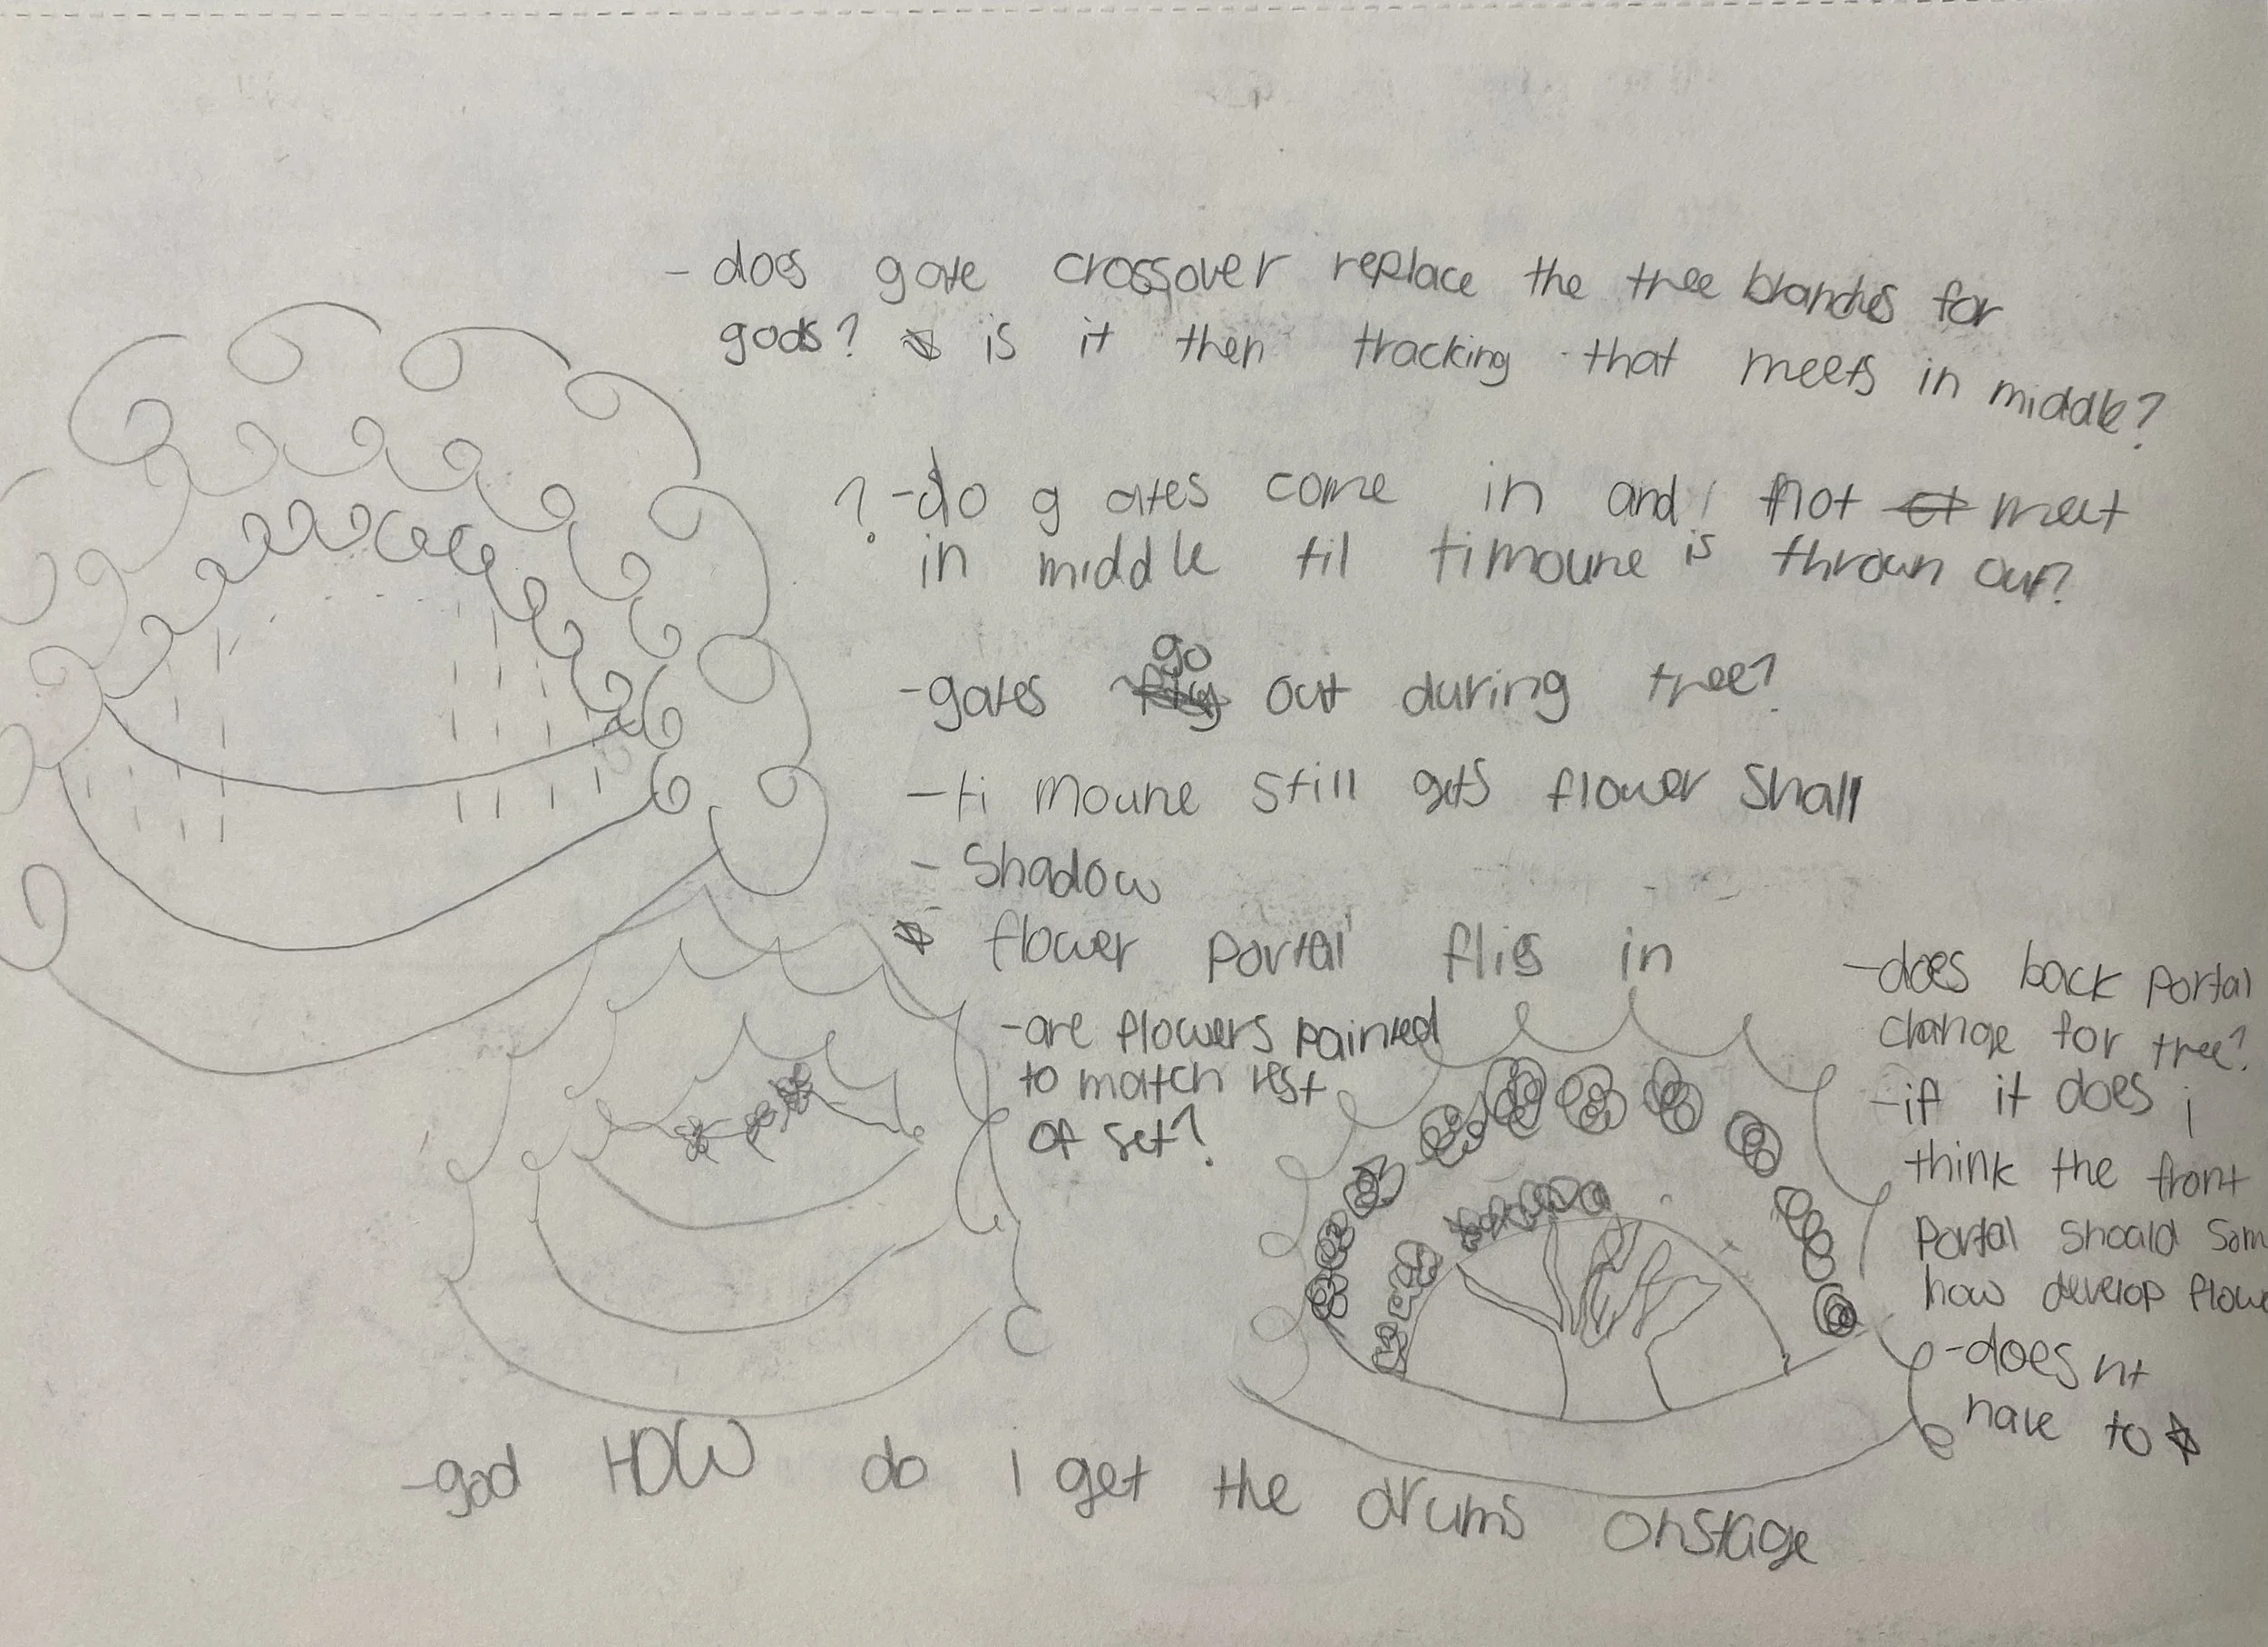 - does gate crossover replace the tree branches for
gods? is it then tracking that meets in middle?
? - do gates come in and not meet
in middle til timoune is thrown out?
- gates go out during tree?
- ti moune still gets flower shall
- Shadow
flower portal flies in
- are flowers painted
to match rest
of set?
- does back portal
change for tree?
- if it does i
think the front
portal should som
how develop flowe
- does nt
have to
- god HOW do i get the drums onstage